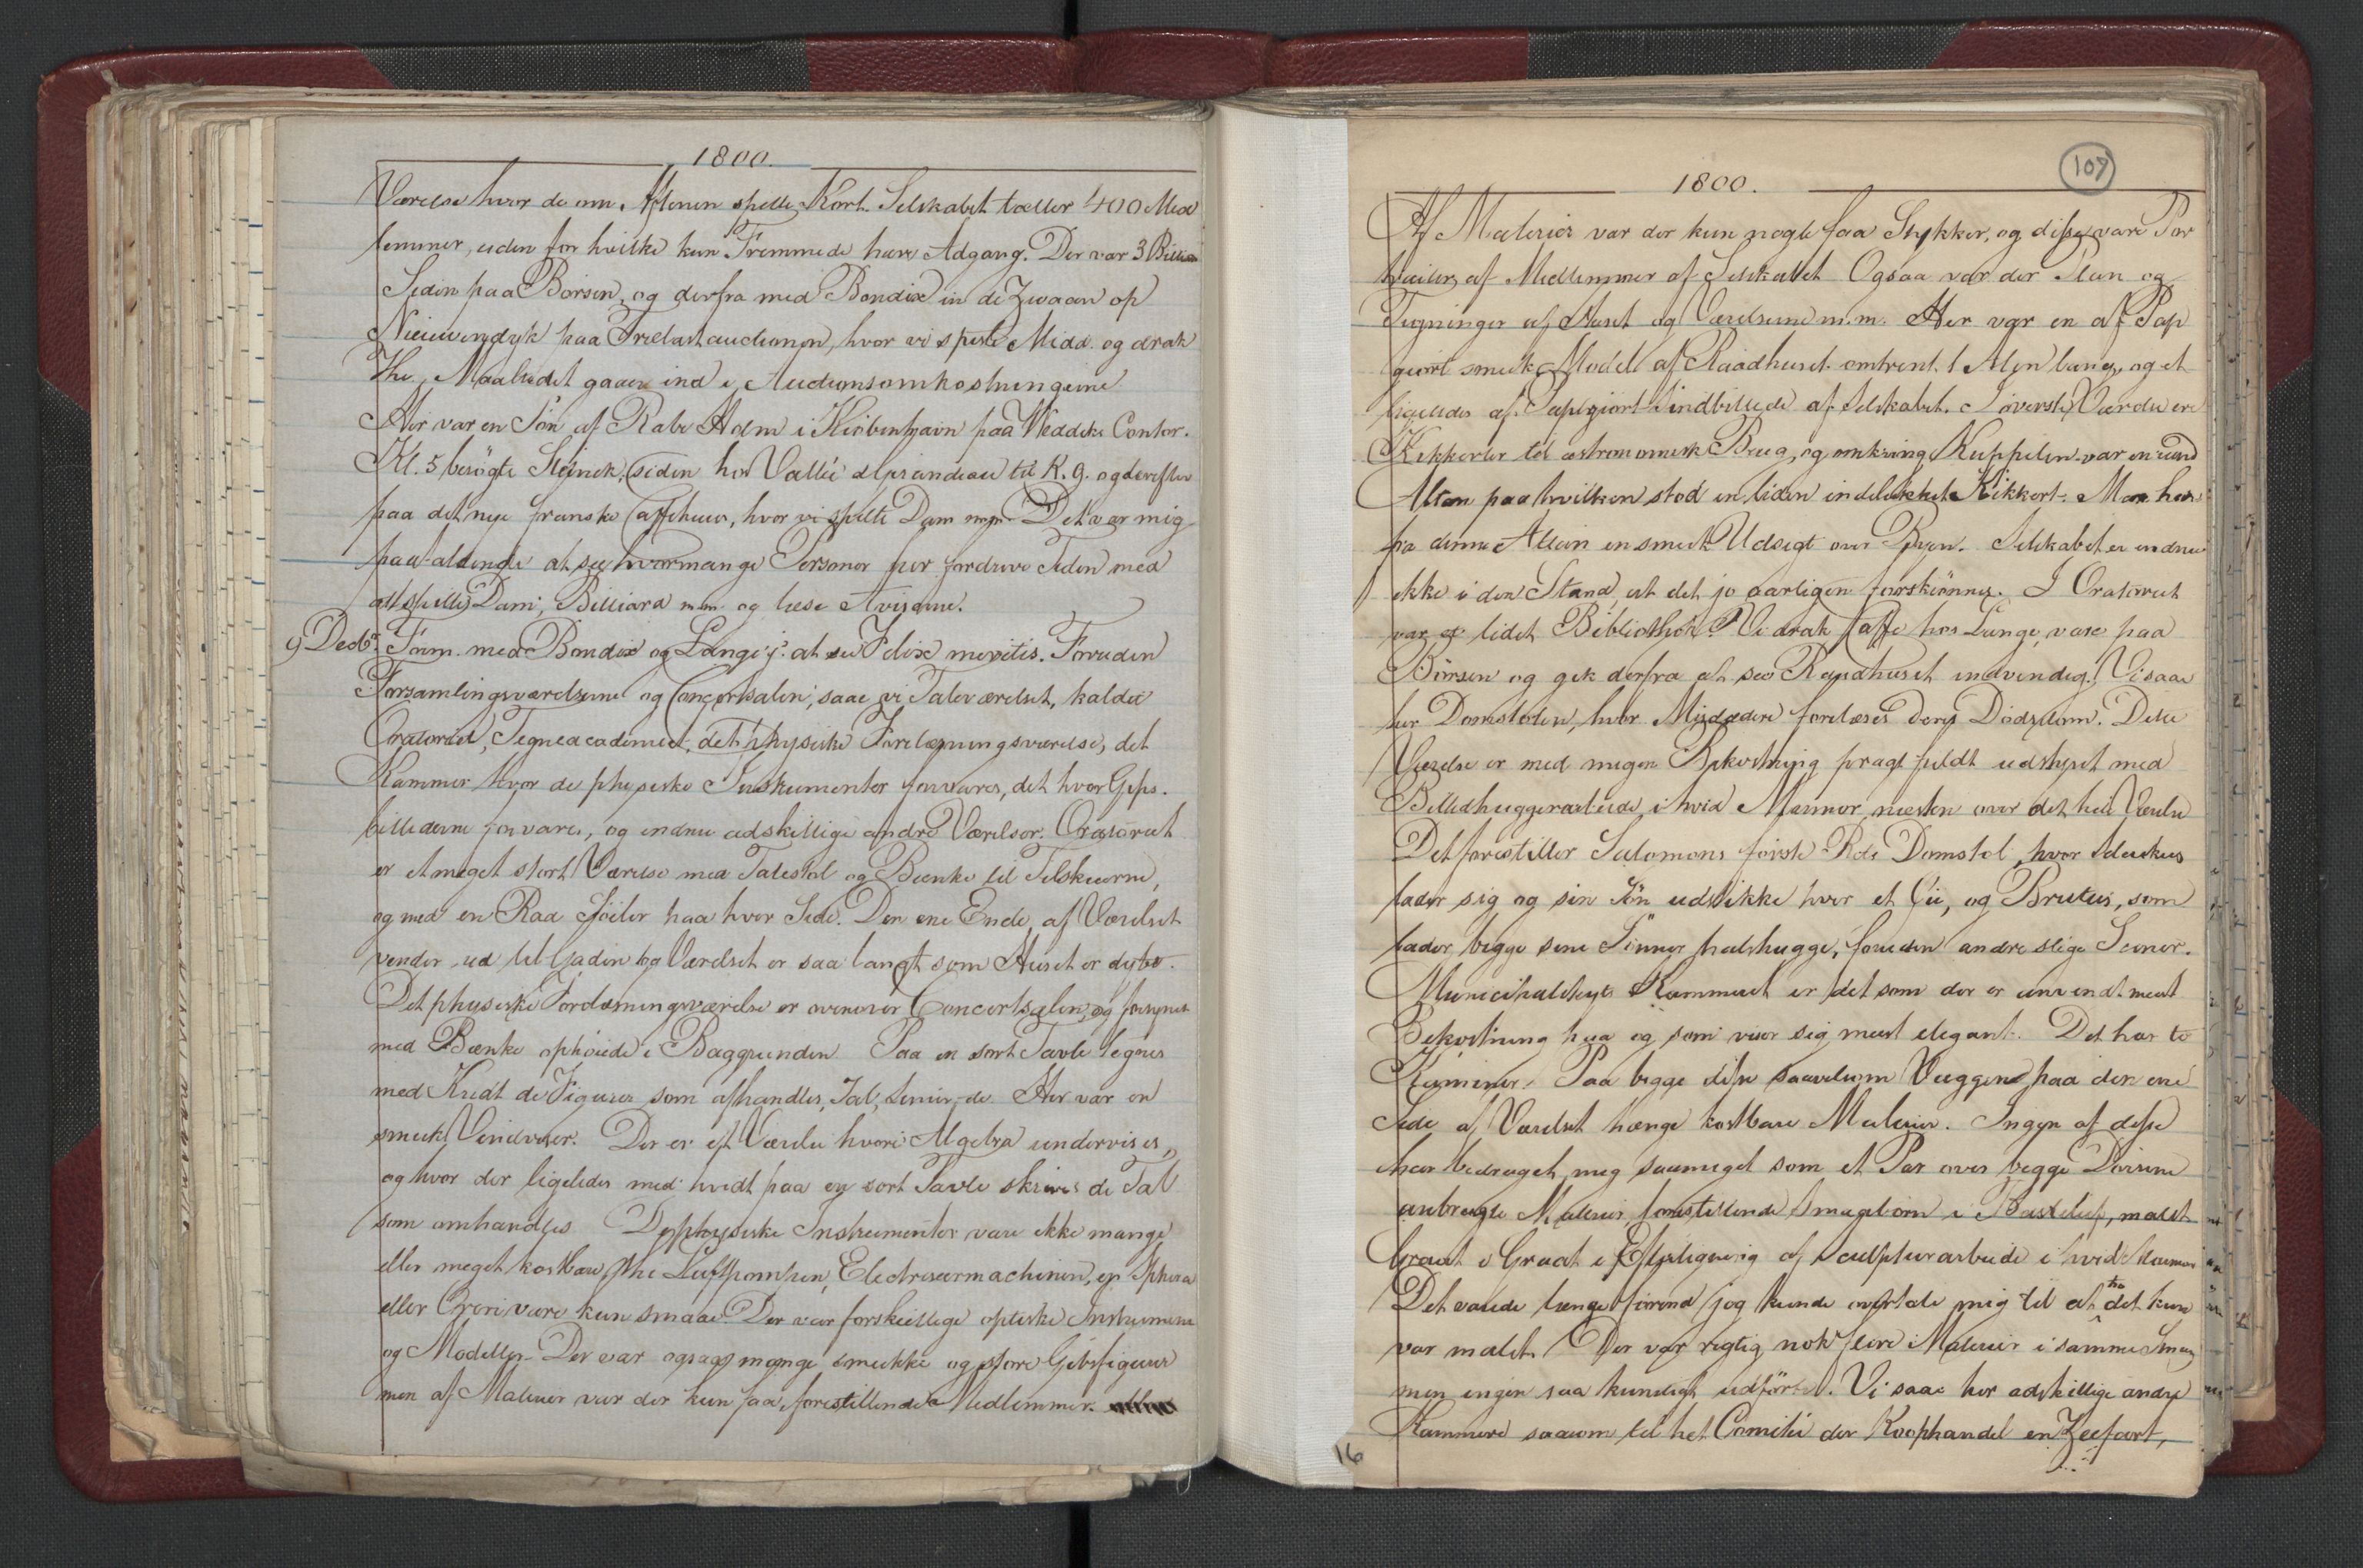 1800.
Værelse hvor de om Aftenen spille Kort. Selskabet tæller 400 Med
lemmer, uden for hvilke kun Fremmede have Adgang. Der var 3 Billia
Siden paa Börsen, og derfra med Bendix in de Zwaan op
Nieuwendyk paa Trælastauctionen, hvor vi spiste Midd. og drak
The. Maaltidet gaaer ind i Auctionsomkostningerne
Her var en Sön af Rabe Holm i Kiöbenhavn paa Weddiks Contor.
Kl. 5 besögte Steinck, siden hos Vallée et Perandeau til K. 9. og derefter
paa det nye franske Caffehuus, hvor vi spilte Dam m.m. Det var mig
paafaldende at see hvormange Personer her fordrive Tiden med
at spille Dam, Billiard m.m. og læse Aviserne.
9 Decbr. Form. med Bendix og Lange j. at see Felix meritis. Foruden
Forsamlingsværelserne og Concertsalen, saae vi Taleværelset, kaldet
Oratoriet, Tegneacademiet, det physiske Forelæsningsværelse, det
Kammer hvor de physiske Instrumenter forvares, det hvor Gips-
billederne forvares, og endnu adskillige andre Værelser. Oratoriet
er et meget stort Værelse med Talestol og Bænke til Tilskuerne,
og med en Rad Söiler paa hver Side. Den ene Ende af Værelset
vender ud til Gaden og Værelset er saa langt som Huset er dybt.
Det physiske Forelæsningsværelse er ovenover Concertsalen, og forsynet
med Bænke ophöiede i Baggrunden Paa en sort Tavle tegnes
med Kridt de Figurer som afhandles, Tal, Linier, &c. Her var en
smuk Vindviser. Der er et Værelse hvori Algebra undervises,
og hvor der ligeledes med hvidt paa en sort Tavle skrives de Tal
som omhandles De physiske Instrumenter vare ikke mange
eller meget kostbare, thi Luftpompen, Electriseermachinen, en Sphæra
eller Orreri vare kun smaae. Der var forskiellige optiske Instrumenter
og Modeller. Der var ogsaa mange smukke og store Gibsfigurer
men af Malerier var der kun faa forestillende Medlemmer.
107
1800.
Af Malerier var der kun nogle faa Stykker, og disse vare Por
traiter af Medlemmer af Selskabet Ogsaa var der Plan og
Tegninger af Huset og Værelserne m.m. Her var en af Pap
giort smuk Model af Raadhuset omtrent 1 Alen lang, og et
ligeledes af Pap giort Sindbillede af Selskabet. I överste Værelse ere
Kikkerter til astronomisk Brug, og omkring Kuppelen var en rund
Altan paa hvilken stod en liden indelukket Kikkert. Man har
fra denne Altan en smuk Udsigt over Byen. Selskabet er endnu
ikke i den Stand, at det jo aarligen forskiönnes. I Oratoriet
var et lidet Bibliothek. Vi drak Caffe hos Lange, vare paa
Börsen og gik derfra at see Raadhuset indvendig. Vi saae
her Domstolen, hvor Misdædere forelæses deres Dödsdom. Dette
Værelse er med megen Bekostning pragtfuldt udstyret med
Billedhuggerarbeide i hvid Marmor næsten over det hele Værelse
Det forestiller Salomons förste Rets Domstol, hvor Seleukus
lader sig og sin Sön udstikke hver et Öie, og Brutus, som
lader begge sine Sönner halshugge, foruden andre slige Scener.
Municipalitetets Kammeret er det som der er anvendt meest
Bekostning paa og som viser sig meest elegant. Det har to
Kaminer. Paa begge disse saavelsom Væggene paa den ene
Side af Værelset hænge kostbare Malerier. Ingen af disse
har bedraget mig saameget som et Par over begge Dörrene
anbragte Malerier forestillende Smaabörn i Basrelief, malet
Graat i Graat i Efterligning af Sculpturarbeide i hvid Marmor
Det varede længe förend jeg kunde overtale mig til at tro det kun
var malet. Der var rigtig nok flere Malerier i samme Smag
men ingen saa kunstigt udfört. Vi saae her adskillige andre
Kammere saasom til het Comitée der Koophandel en Zeefart,
16